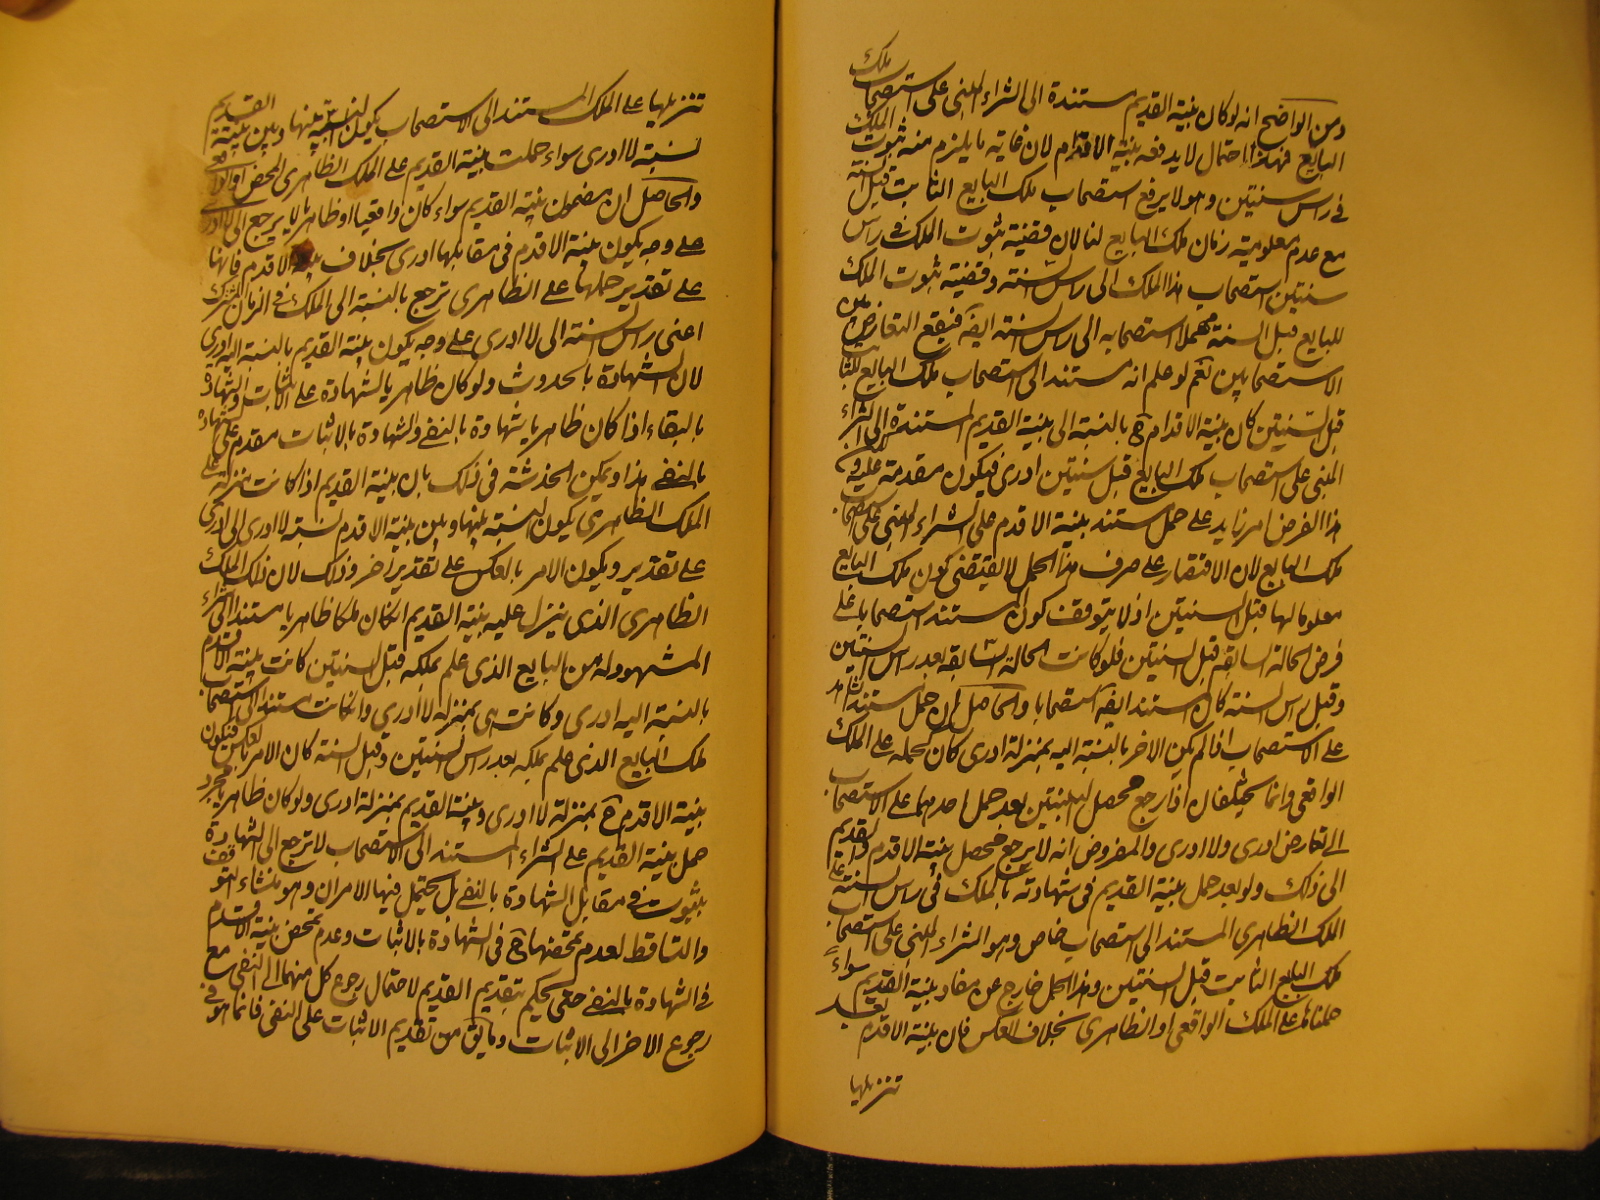 ومن الواضح انه لو كان بينة القديم مستندة الى الشراء المبنى على استصحاب ملك
البايع فهذا احتمال لا يدفعه بينة الاقدم لان غاية ما يلزم منه ثبوت الملك
فى راس سنتين وهو لا يرفع استصحاب ملك البايع الثابت قبل السنة
مع عدم معلومية زمان ملك البايع لنا لان قضية ثبوت الملك فى راس
سنتين استصحاب هذا الملك الى راس السنة وقضية ثبوت الملك
للبايع قبل السنة استصحابه الى راس السنة ايضا فيقع التعارض بين
الاستصحابين نعم لو علم انه مستند الى استصحاب ملك البايع الثابت
قبل السنتين كان بينة الاقدم ح بالنسبة الى بينة القديم المستندة الى الشراء
المبنى على استصحاب ملك البايع قبل سنتين ادرى فيكون مقدمة عليه
هذا الفرض امر زايد على حمل مستند بينة الاقدم على الشراء المبنى على استصحاب
ملك البايع لان الاقتصار على صرف هذا الحمل لا يقتضى كون ملك البايع
معلوما لها قبل السنتين اذ لا يتوقف كون المستند استصحابا على
فرض الحالة السابقة قبل السنتين فلو كانت الحالة السابقة بعد راس السنتين
وقبل راس السنة كان المستند ايضا استصحابا والحاصل ان حمل مستند الشاهد
على الاستصحاب اذا لم يكن الاخر بالنسبة اليه بمنزلة ادرى كان كحمله على الملك
الواقعى وانما يختلفان اذا رجع محصل البينتين بعد حمل احدهما على الاستصحاب
الى تعارض ادرى ولا ادرى والمفروض انه لا يرجع محصل بينة الاقدم والقديم
الى ذلك ولو بعد حمل بينة القديم فى شهادته بالملك فى راس السنة على
الملك الظاهرى المستند الى استصحاب خاص وهو الشراء المبنى على استصحاب
ملك البايع الثابت قبل السنتين وهذا الحمل خارج عن مفاد بينة القديم سواء
حملناها على الملك الواقعى او الظاهرى بخلاف العكس فان بينة الاقدم بعد
تنزيلها
تنزيلها على الملك المستند الى الاستصحاب يكون النسبة بينها وبين بينة القديم
نسبة لا ادرى سواء حملت بينة القديم على الملك الظاهرى المحض او الواقعى
والحاصل ان مضمون بينة القديم سواء كان واقعيا او ظاهريا لا يرجع الى لا ادرى
على وجه يكون بينة الاقدم فى مقابلها ادرى بخلاف بينة الاقدم فانها
على تقدير حملها على الظاهرى ترجع بالنسبة الى الملك فى الزمان المشترك
اعنى راس السنة الى لا ادرى على وجه يكون بينة القديم بالنسبة اليه ادرى
لان الشهادة بالحدوث ولو كان ظاهريا شهادة على الاثبات والشهادة
بالبقاء اذا كان ظاهريا شهادة بالنفى والشهادة بالاثبات مقدم على شهادة
بالنفى هذا ويمكن الخدشة فى ذلك بان بينة القديم اذا كانت منزلة على
الملك الظاهرى يكون النسبة بينها وبين بينة الاقدم نسبة لا ادرى الى ادرى
على تقدير ويكون الامر بالعكس على تقدير اخر وذلك لان ذلك الملك
الظاهرى الذى ينزل عليه بينة القديم ان كان ملكا ظاهريا مستندا الى الشراء
المشهود له من البايع الذى علم بملكه قبل السنتين كانت بينة الاقدم
بالنسبة اليه ادرى وكانت هى بمنزلة لا ادرى وان كانت مستندا الى استصحاب
ملك البايع الذى علم بملكه بعد راس السنتين وقبل السنة كان الامر بالعكس فيكون
بينة الاقدم ح بمنزلة لا ادرى وبينة القديم بمنزلة ادرى ولو كان ظاهريا فمجرد
حمل بينة القديم على الشراء المستند الى الاستصحاب لا ترجع الى الشهادة
بثبوت فى مقابل الشهادة بالنفى بل يحتمل فيها الامران وهو منشاء التوقف
والتساقط لعدم تمحضها ح فى الشهادة بالاثبات وعدم تمحض بينة الاقدم
فى الشهادة بالنفى حتى يحكم بتقديم القديم لاحتمال رجوع كل منهما الى النفى مع
رجوع الاخر الى الاثبات وما يق من تقديم الاثبات على النفى فانما هو فى